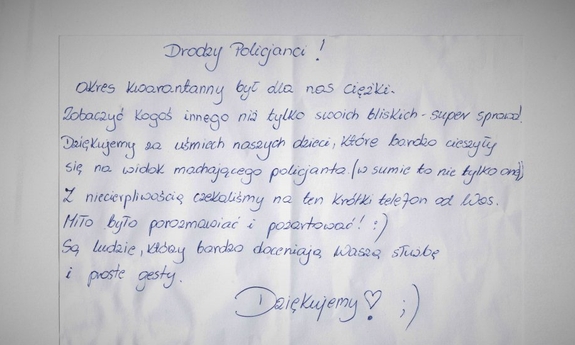 Drodzy Policjanci!
Okres kwarantanny był dla nas ciężki.
Zobaczyć kogoś innego niż tylko swoich bliskich - super sprawa!
Dziękujemy za uśmiech naszych dzieci, które bardzo cieszyły
się na widok machającego policjanta. (w sumie to nie tylko one)
Z niecierpliwością czekaliśmy na ten krótki telefon od Was.
Miło było porozmawiać i pożartować! :)
Są ludzie, którzy bardzo doceniają Waszą służbę
i proste gesty.
Dziękujemy ♡ ;)